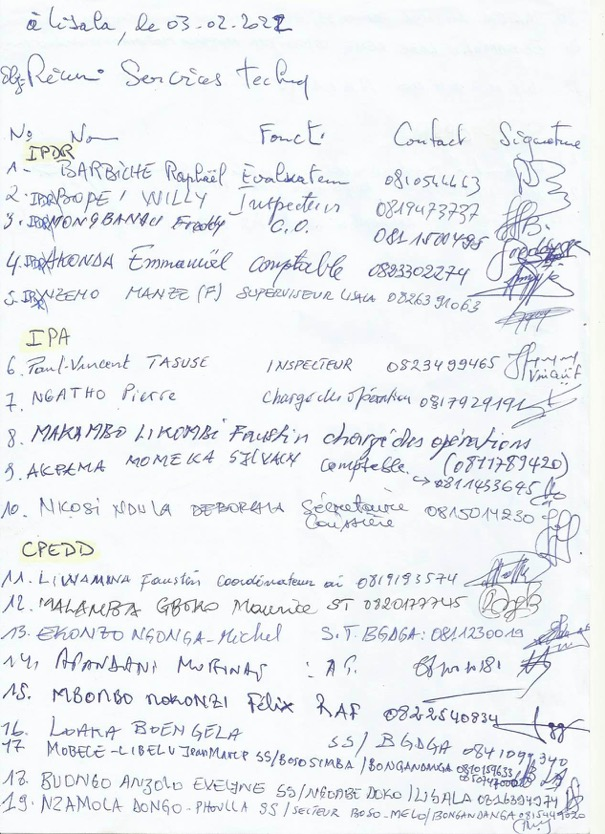 à Lisala, le 03-02-2022
Obj: Réuni Services techniq
No Nom Foncti Contact Signature
IPDR
1- BARBICHE Raphaël Evaluateur 0810544463
2. IPDR BOPE I WILLY Inspecteur 0819473737
3. IPDR MONGBANGU Freddy C.O. 0811500495
4. IPDR AKONDA Emmanuël Comptable 0823302274
5. NZEMO MANZE (F) SUPERVISEUR LISALA 0826391063
IPA
6. Paul-Vincent TASUSE INSPECTEUR 0823499465
7. NGATHO Pierre Chargé des opération 0817929191
8. MAKAMBO LIKOMBI Faustin chargé des opérations
(0811789420)
9. AKPEMA MOMEKA SYLVAIN Comptable
→ 0811453645
10. NKOSI NDULA DEBORAH Sécretaire 0815014230
Caissière
CPEDD
11. LIWAMINA Faustin Coordinateur ai 0819193574
12. MALAMBA GBOKO Maurice ST 0820177745
13. EKONZO NGONGA-Michel S.T. BGDGA: 0811230019
14. APANDANI : AG.
15. MBOMBO NOKONZI Félix RAF 0822540834
16. LOAKA BOENGELA SS/ BGDGA
17. MOBELE-LIBELU Jean Marie SS/BOSO SIMBA /BONGANDANGA 0810159633/
18. BUONGO ANZOLO EVELYNE SS/NGOMBE DOKO /LISALA
19. NZAMOLA DONGO-PHOULLA SS/SECTEUR BOSO-MELO/BONGANDANGA